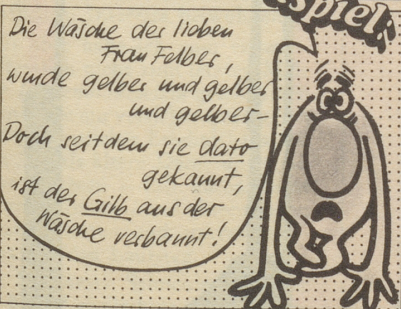 spiel
Die Wäsche der lieben
Frau Felber,
wurde gelber und gelber
und gelber-
Doch seitdem sie dato
gekannt,
ist der Gilb aus der
Wäsche verbannt!